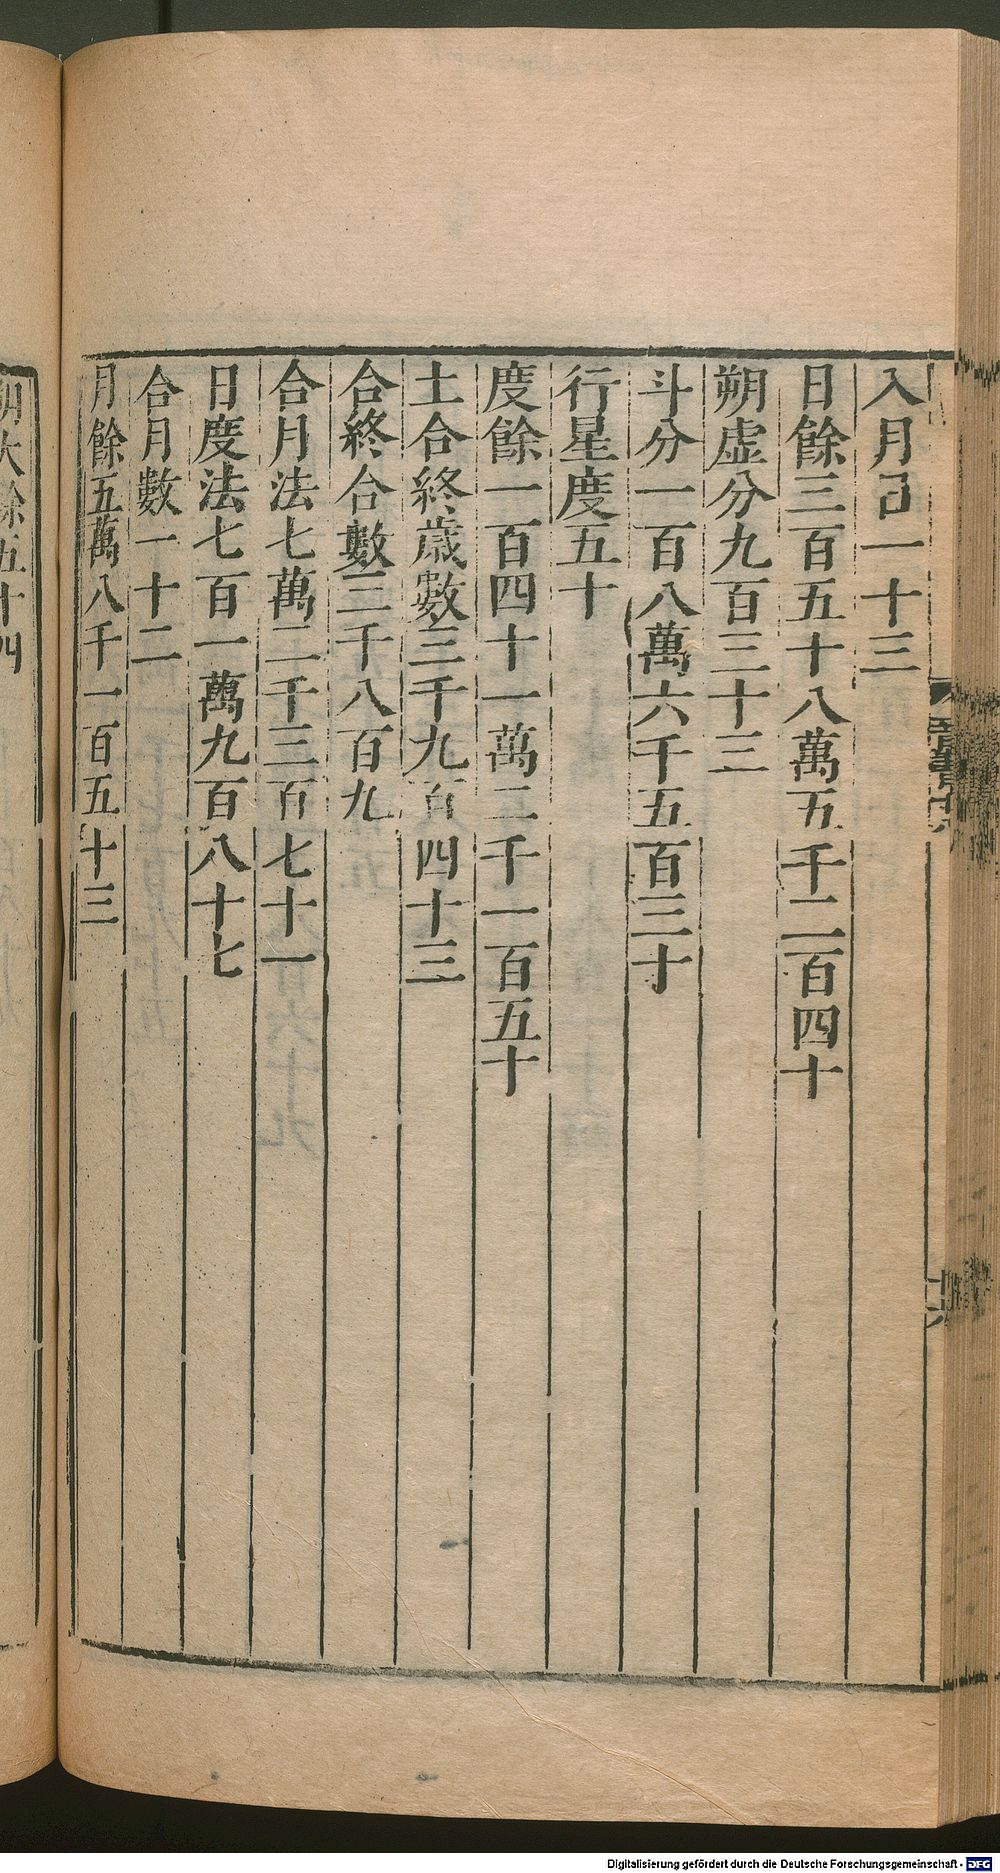 入月日一十三
日餘三百五十八萬五千二百四十
朔虛分九百三十三
斗分一百八萬六千五百三十
行星度五十
度餘一百四十一萬二千一百五十
土合終歲數三千九百四十三
合終合數三千八百九
合月法七萬二千三百七十一
日度法七百一萬九百八十七
合月數一十二
月餘五萬八千一百五十三
朔大餘五十四
Digitalisierung gefördert durch die Deutsche Forschungsgemeinschaft - DFG